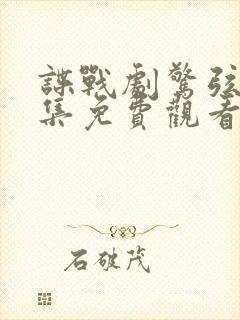 諜戰劇驚弦
集免費觀看
石破茂